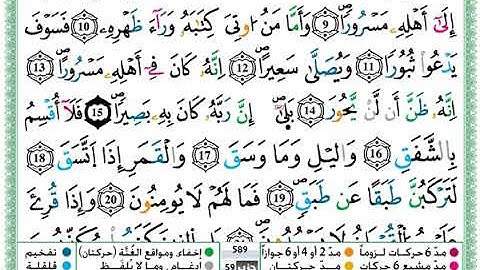 إِلَىٰٓ أَهْلِهِۦ مَسْرُوراٗۖ 9 وَأَمَّا مَنُ اوتِىَ كِتَٰبَهُۥ وَرَآءَ ظَهْرِهِۦ 10 فَسَوْفَ
يَدْعُواْ ثُبُوراٗ 11 وَيُصَلَّىٰ سَعِيراًۖ 12 اِنَّهُۥ كَانَ فِےٓ أَهْلِهِۦ مَسْرُوراًۖ 13
اِنَّهُۥ ظَنَّ أَن لَّنْ يَّحُورَۖ 14 بَلَىٰٓۖ إِنَّ رَبَّهُۥ كَانَ بِهِۦ بَصِيراٗۖ 15 فَلَآ أُقْسِمُ
بِالشَّفَقِ 16 وَالَّيْلِ وَمَا وَسَقَ 17 وَالْقَمَرِ إِذَا اَتَّسَقَ 18
لَتَرْكَبُنَّ طَبَقاً عَن طَبَقٖۖ 19 فَمَا لَهُمْ لَا يُومِنُونَ 20 وَإِذَا قُرِئَ
مدّ 6 حركات لزوماً مدّ 2 أو 4 أو 6 جوازاً 589 إخفاء، ومواقع الغُنَّة (حركتان) تفخيم
مدّ مشبع 6 حركات مدّ حركتان 59 إدغام، وما لا يُلفَظ قلقلة